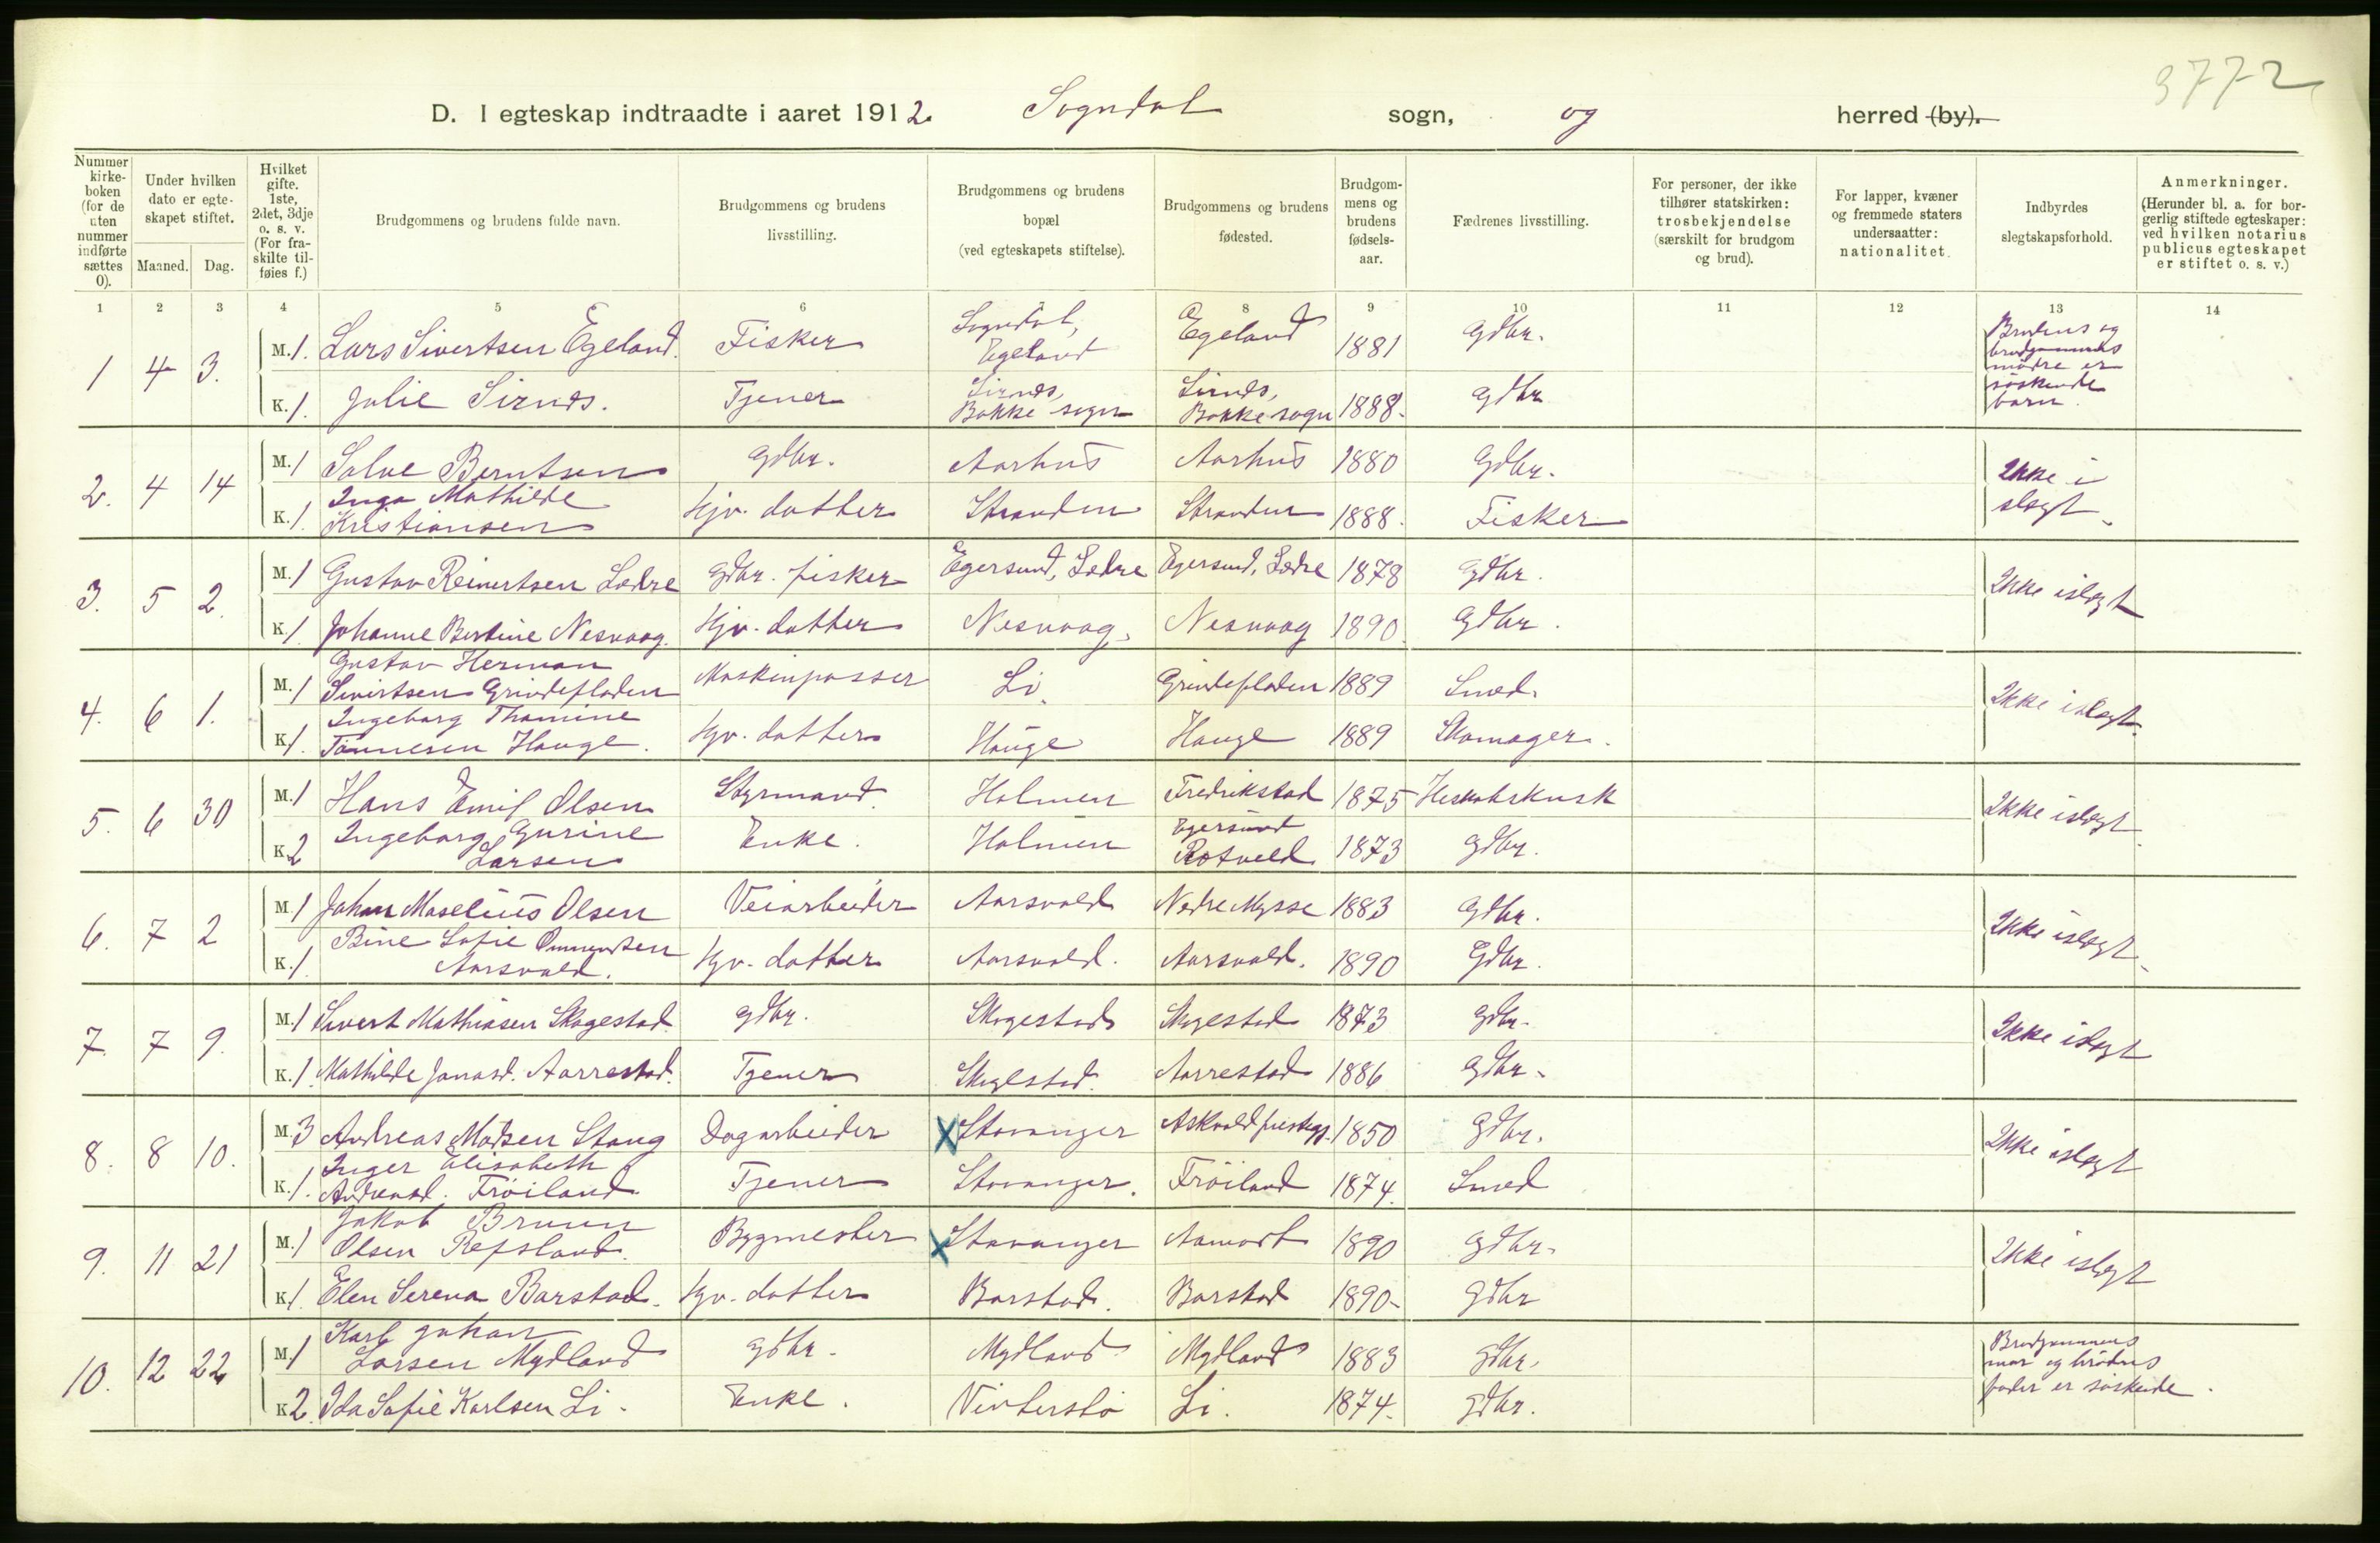 3772
D. I egteskap indtraadte i aaret 1912. Sogndal sogn, og herred (by).
Nummer kirke-boken (for de uten nummer indførte sættes 0).
Under hvilken dato er egte-skapet stiftet.
Maaned. Dag.
Hvilket gifte. 1ste, 2det, 3dje o. s. v. (For fra-skilte til-føies f.)
Brudgommens og brudens fulde navn.
Brudgommens og brudens livsstilling.
Brudgommens og brudens bopæl (ved egteskapets stiftelse).
Brudgommens og brudens fødested.
Brudgom-mens og brudens fødsels-aar.
Fædrenes livsstilling.
For personer, der ikke tilhører statskirken: trosbekjendelse (særskilt for brudgom og brud).
For lapper, kvæner og fremmede staters undersaatter: nationalitet.
Indbyrdes slegtskapsforhold.
Anmerkninger. (Herunder bl. a. for bor-gerlig stiftede egteskaper: ved hvilken notarius publicus egteskapet er stiftet o. s. v.)
1 2 3 4 5 6 7 8 9 10 11 12 13 14
1 4 3. M. 1. Lars Sivertsen Egeland. Fisker Sogndal, Egeland Egeland 1881 Gdbr. Brudens og brudgommens mødre er søskende barn.
K. 1. Julie Sirnes. Tjener Sirnes, Bakke sogn Sirnes, Bakke sogn 1888. Gdbr
2. 4 14 M. 1 Salve Berntsen Gdbr. Aarhus Aarhus 1880 Gdbr. Ikke i slegt.
K. 1. Inga Mathilde Kristiansen Hjv. datter Stranden Stranden 1888. Fisker
3. 5 2. M. 1 Gustav Reinertsen Ledre Gdbr. fisker Egersund, Ledre Egersund, Ledre 1878 Gdbr. Ikke i slegt
K. 1 Johanne Bertine Nesvaag. Hjv. datter Nesvaag. Nesvaag 1890. Gdbr.
4. 6 1. M. 1 Gustav Herman Sivertsen Grindefladen Maskinpasser Li. Grindefladen 1889 Smed. Ikke i slegt.
K. 1. Ingeborg Thomine Tønnesen Hauge. Hjv. datter Hauge Hauge 1889 Skomager.
5. 6 30 M. 1 Hans Emil Olsen Styrmand. Holmen Fredrikstad 1875 Ikke i slegt.
K. 2 Ingeborg Gurine Larsen Enke. Holmen Egersund 1873 Gdbr.
6. 7 2 M. 1 Johan Maselius Olsen Veiarbeider Aarsvold Nedre Mysse 1883 Gdbr. Ikke i slegt.
K. 1 Bine Sofie Ommundsen Aarsvold. Hjv. datter Aarsvold. Aarsvold. 1890 Gdbr.
7. 7 9. M. 1 Sivert Mathiasen Skogestad. Gdbr. Skogestad Skogestad 1873 Gdbr. Ikke i slegt
K. 1. Mathilde Jonasd. Aarrestad. Tjener Skogestad. Aarrestad 1886 Gdbr.
8. 8 10. M. 3 Andreas Madsen Stang Dagarbeider X Stavanger Askvold prestegj. 1850 Gdbr. Ikke i slegt
K. 1. Inger Elisabeth Andreasd. Frøiland. Tjener Stavanger. Frøiland 1874. Smed
9. 11 21 M. 1 Jakob Bruun Olsen Refsland. Bygmester X Stavanger Aamodt 1890 Gdbr. Ikke i slegt
K. 1 Elen Serena Barstad. Hjv. datter Barstad. Barstad 1890. Gdbr
10. 12 22 M. 1 Karl Johan Larsen Mydland Gdbr. Mydland Mydland 1883 Gdbr. Brudgommens mor og brudens fader er søskende.
K. 2. Ida Sofie Karlsen Li. Enke. Vinterstø Li. 1874. Gdbr.